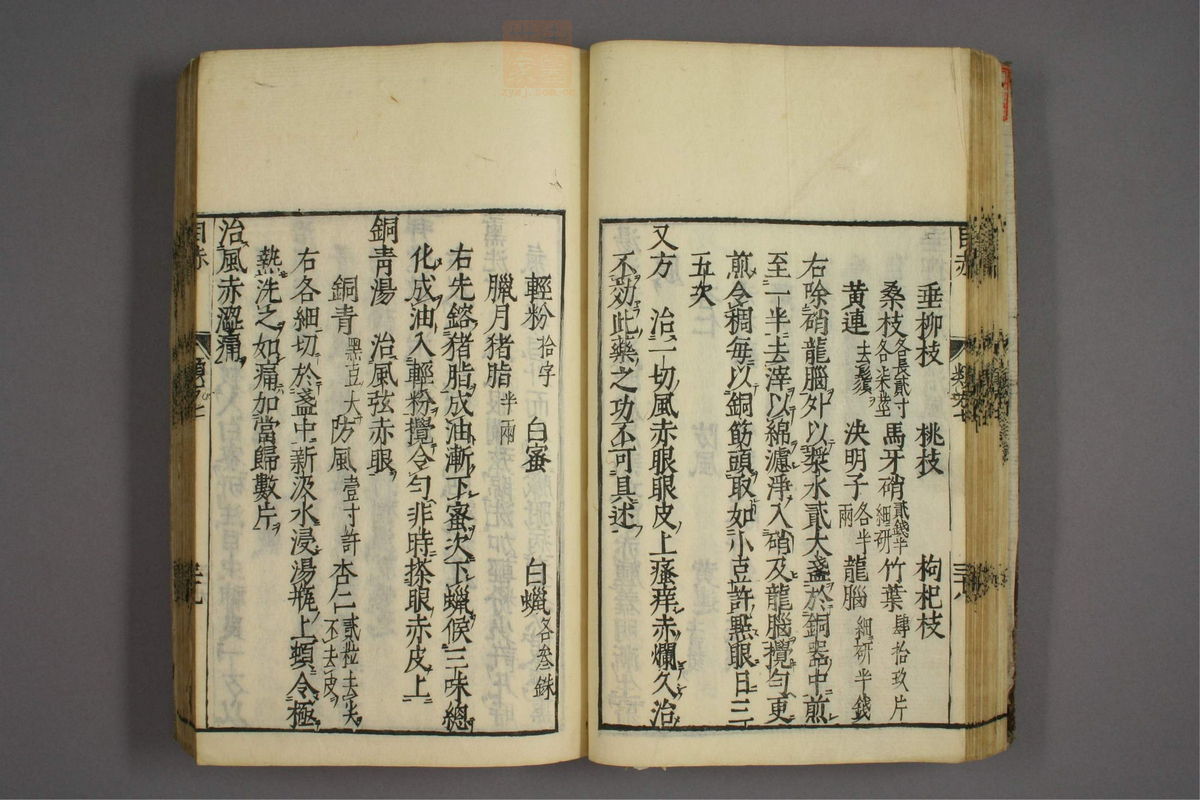 垂柳枝　桃枝　枸杞枝
桑枝各長貳寸各柒莖　馬牙硝貳錢半細研　竹葉肆拾玖片
黃連去鬚　決明子各半兩　龍腦細研半錢
右除硝龍腦外以漿水貳大盞於銅器中煎
至一半去滓以綿濾淨入硝及龍腦攪勻更
煎令稠每以銅筯頭取如小豆許㸃眼日三
五次
又方　治一切風赤眼眼皮上瘙痒赤爛久治
不効此藥之功不可具述
輕粉拾字　白蜜　白蠟各叁銖
臘月猪脂半兩
右先鎔猪脂成油漸下蜜次下蠟候三味總
化成油入輕粉攪令勻非時搽眼赤皮上
銅青湯　治風弦赤眼
銅青黑豆大　防風壹寸許　杏仁貳粒去尖不去皮
右各細切於盞中新汲水浸湯瓶上頓令極
熱洗之如痛加當歸數片
治風赤澀痛
目赤